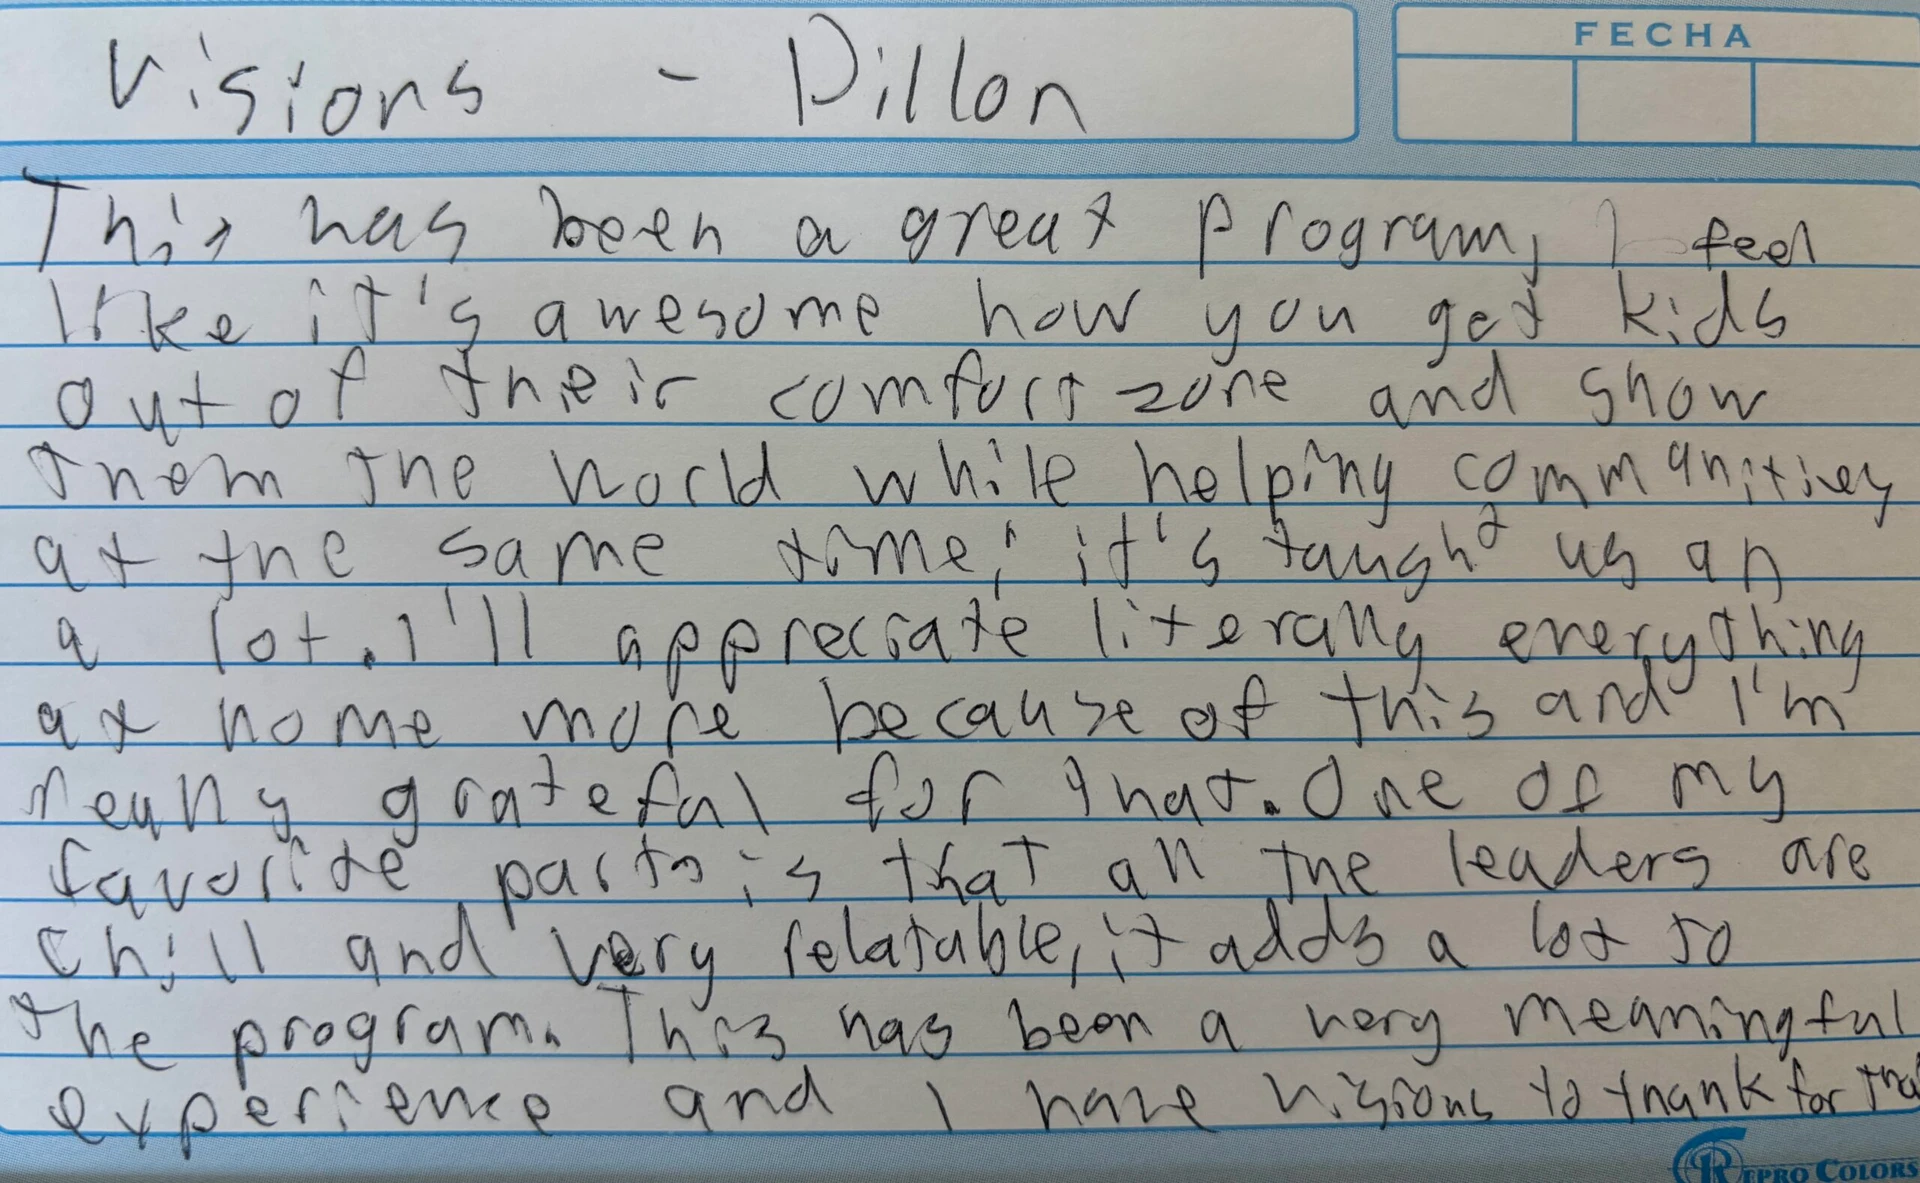 Visions - Dillon
FECHA
This has been a great program, I feel
like it's awesome how you get kids
out of their comfort zone and show
them the world while helping communities
at the same time; it's taught us an
a lot. I'll appreciate literally everything
at home more because of this and I'm
really grateful for that. One of my
favorite parts is that all the leaders are
chill and very relatable, it adds a lot to
the program. This has been a very meaningful
experience and I have visions to thank for that
REPRO COLORS